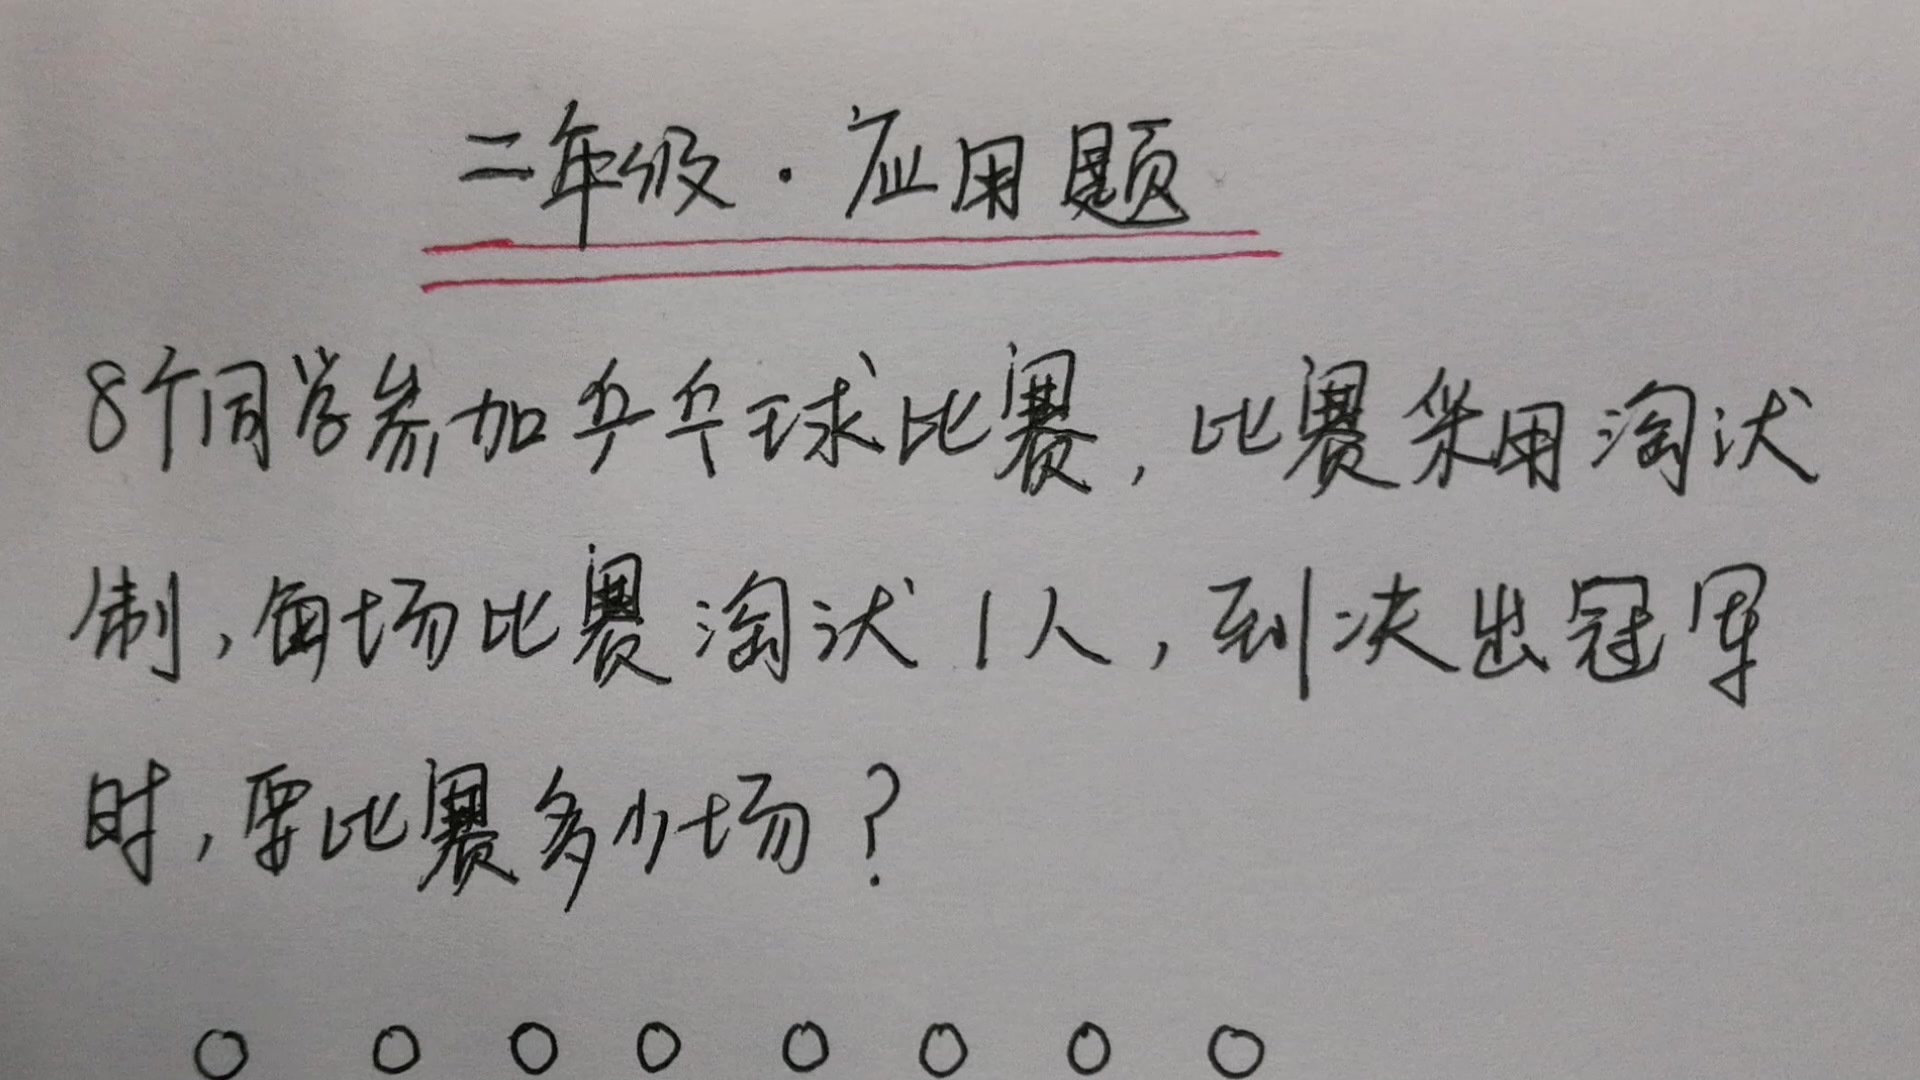 二年级·应用题
8个同学参加乒乓球比赛,比赛采用淘汰
制,每场比赛淘汰1人,到决出冠军
时,要比赛多少场?